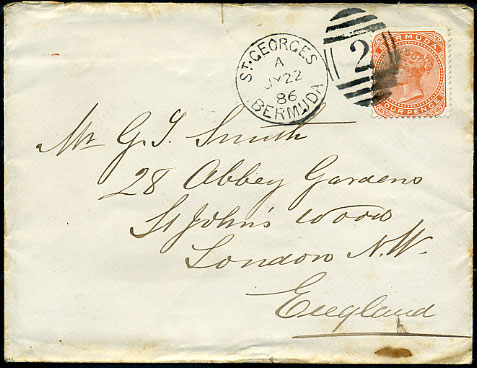 ST. GEORGES
A
JY 22
86
BERMUDA
2
BERMUDA
FOUR PENCE
Mr G. J. Smith
28 Abbey Gardens
St John's Wood
London N.W.
England